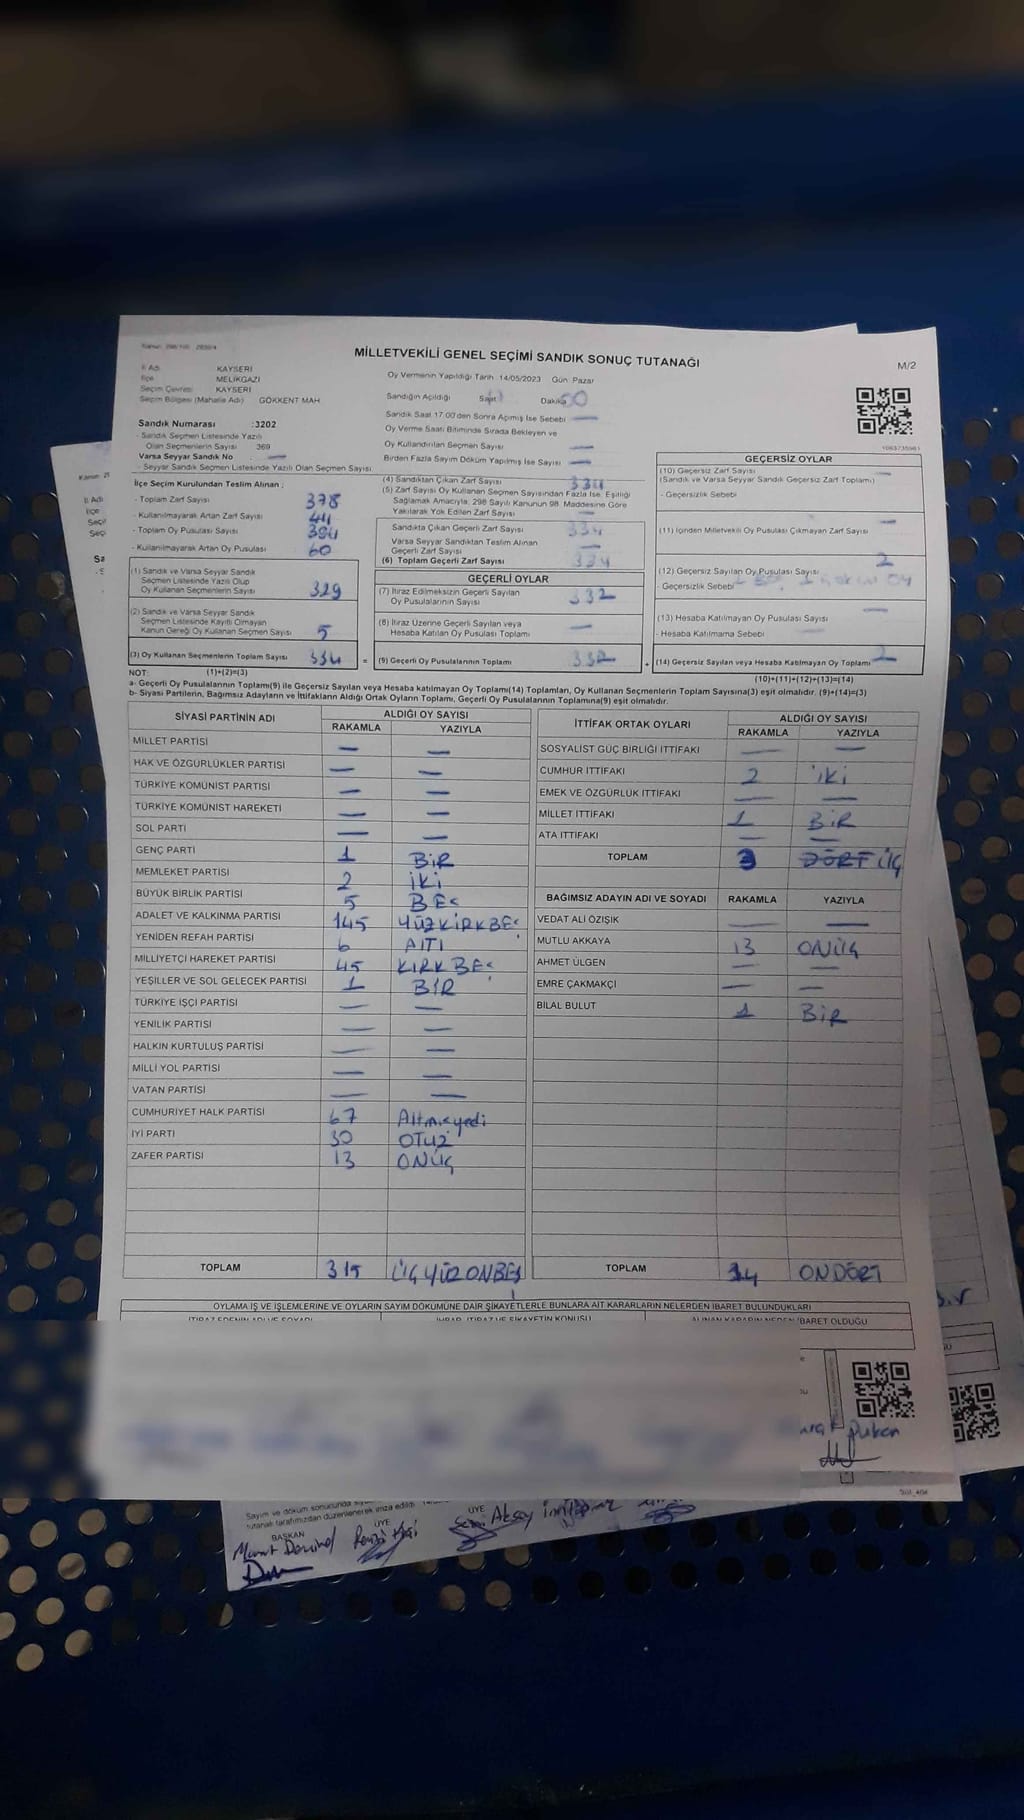 MİLLETVEKİLİ GENEL SEÇİMİ SANDIK SONUÇ TUTANAĞI
M/2
İl Adı KAYSERİ
İlçe MELİKGAZİ
Seçim Çevresi KAYSERİ
Seçim Bölgesi (Mahalle Adı) GÖKKENT MAH
Oy Vermenin Yapıldığı Tarih 14/05/2023 Gün: Pazar
Sandığın Açıldığı Saat Dakika 00
Sandık Saat 17:00'den Sonra Açılmış İse Sebebi —
Oy Verme Saati Bitiminde Sırada Bekleyen ve
Oy Kullandırılan Seçmen Sayısı —
Birden Fazla Sayım Döküm Yapılmış İse Sayısı —
Sandık Numarası :3202
- Sandık Seçmen Listesinde Yazılı
Olan Seçmenlerin Sayısı 369
Varsa Seyyar Sandık No —
- Seyyar Sandık Seçmen Listesinde Yazılı Olan Seçmen Sayısı
İlçe Seçim Kurulundan Teslim Alınan ;
- Toplam Zarf Sayısı 378
- Kullanılmayarak Artan Zarf Sayısı 44
- Toplam Oy Pusulası Sayısı 394
- Kullanılmayarak Artan Oy Pusulası 60
(1) Sandık ve Varsa Seyyar Sandık
Seçmen Listesinde Yazılı Olup
Oy Kullanan Seçmenlerin Sayısı 329
(2) Sandık ve Varsa Seyyar Sandık
Seçmen Listesinde Kayıtlı Olmayan
Kanun Gereği Oy Kullanan Seçmen Sayısı 5
(3) Oy Kullanan Seçmenlerin Toplam Sayısı 334
(1)+(2)=(3)
(4) Sandıktan Çıkan Zarf Sayısı 334
(5) Zarf Sayısı Oy Kullanan Seçmen Sayısından Fazla İse, Eşitliği
Sağlamak Amacıyla, 298 Sayılı Kanunun 98. Maddesine Göre
Yakılarak Yok Edilen Zarf Sayısı —
Sandıkta Çıkan Geçerli Zarf Sayısı 334
Varsa Seyyar Sandıktan Teslim Alınan
Geçerli Zarf Sayısı —
(6) Toplam Geçerli Zarf Sayısı 334
GEÇERLİ OYLAR
(7) İtiraz Edilmeksizin Geçerli Sayılan
Oy Pusulalarının Sayısı 332
(8) İtiraz Üzerine Geçerli Sayılan veya
Hesaba Katılan Oy Pusulası Toplamı —
= (9) Geçerli Oy Pusulalarının Toplamı 332
1063735961
GEÇERSİZ OYLAR
(10) Geçersiz Zarf Sayısı —
(Sandık ve Varsa Seyyar Sandık Geçersiz Zarf Toplamı)
- Geçersizlik Sebebi
(11) İçinden Milletvekili Oy Pusulası Çıkmayan Zarf Sayısı —
(12) Geçersiz Sayılan Oy Pusulası Sayısı 2
- Geçersizlik Sebebi
(13) Hesaba Katılmayan Oy Pusulası Sayısı —
- Hesaba Katılmama Sebebi —
+ (14) Geçersiz Sayılan veya Hesaba Katılmayan Oy Toplamı 2
(10)+(11)+(12)+(13)=(14)
NOT:
a- Geçerli Oy Pusulalarının Toplamı(9) ile Geçersiz Sayılan veya Hesaba katılmayan Oy Toplamı(14) Toplamları, Oy Kullanan Seçmenlerin Toplam Sayısına(3) eşit olmalıdır. (9)+(14)=(3)
b- Siyasi Partilerin, Bağımsız Adayların ve İttifakların Aldığı Ortak Oyların Toplamı, Geçerli Oy Pusulalarının Toplamına(9) eşit olmalıdır.
SİYASİ PARTİNİN ADI ALDIĞI OY SAYISI
RAKAMLA YAZIYLA
MİLLET PARTİSİ — —
HAK VE ÖZGÜRLÜKLER PARTİSİ — —
TÜRKİYE KOMÜNİST PARTİSİ — —
TÜRKİYE KOMÜNİST HAREKETİ — —
SOL PARTİ — —
GENÇ PARTİ 1 BİR
MEMLEKET PARTİSİ 2 İKİ
BÜYÜK BİRLİK PARTİSİ 5 BEŞ
ADALET VE KALKINMA PARTİSİ 145 YÜZKIRKBEŞ
YENİDEN REFAH PARTİSİ 6 ALTI
MİLLİYETÇİ HAREKET PARTİSİ 45 KIRK BEŞ
YEŞİLLER VE SOL GELECEK PARTİSİ 1 BİR
TÜRKİYE İŞÇİ PARTİSİ — —
YENİLİK PARTİSİ — —
HALKIN KURTULUŞ PARTİSİ — —
MİLLİ YOL PARTİSİ — —
VATAN PARTİSİ — —
CUMHURİYET HALK PARTİSİ 67 Altmışyedi
İYİ PARTİ 30 OTUZ
ZAFER PARTİSİ 13 ONÜÇ
TOPLAM 315 ÜÇYÜZONBEŞ
İTTİFAK ORTAK OYLARI ALDIĞI OY SAYISI
RAKAMLA YAZIYLA
SOSYALİST GÜÇ BİRLİĞİ İTTİFAKI — —
CUMHUR İTTİFAKI 2 İKİ
EMEK VE ÖZGÜRLÜK İTTİFAKI — —
MİLLET İTTİFAKI 1 BİR
ATA İTTİFAKI — —
TOPLAM 3 DÖRT ÜÇ
BAĞIMSIZ ADAYIN ADI VE SOYADI RAKAMLA YAZIYLA
VEDAT ALİ ÖZIŞIK — —
MUTLU AKKAYA 13 ONÜÇ
AHMET ÜLGEN — —
EMRE ÇAKMAKÇI — —
BİLAL BULUT 1 BİR
TOPLAM 14 ONDÖRT
OYLAMA İŞ VE İŞLEMLERİNE VE OYLARIN SAYIM DÖKÜMÜNE DAİR ŞİKAYETLERLE BUNLARA AİT KARARLARIN NELERDEN İBARET BULUNDUKLARI
İTİRAZ EDENİN ADI VE SOYADI İHBAR, İTİRAZ VE ŞİKAYETİN KONUSU ALINAN KARARIN NEDEN İBARET OLDUĞU
Sayım ve döküm sonucunda
tutanak tarafımızdan düzenlenerek imza edildi
BAŞKAN ÜYE ÜYE